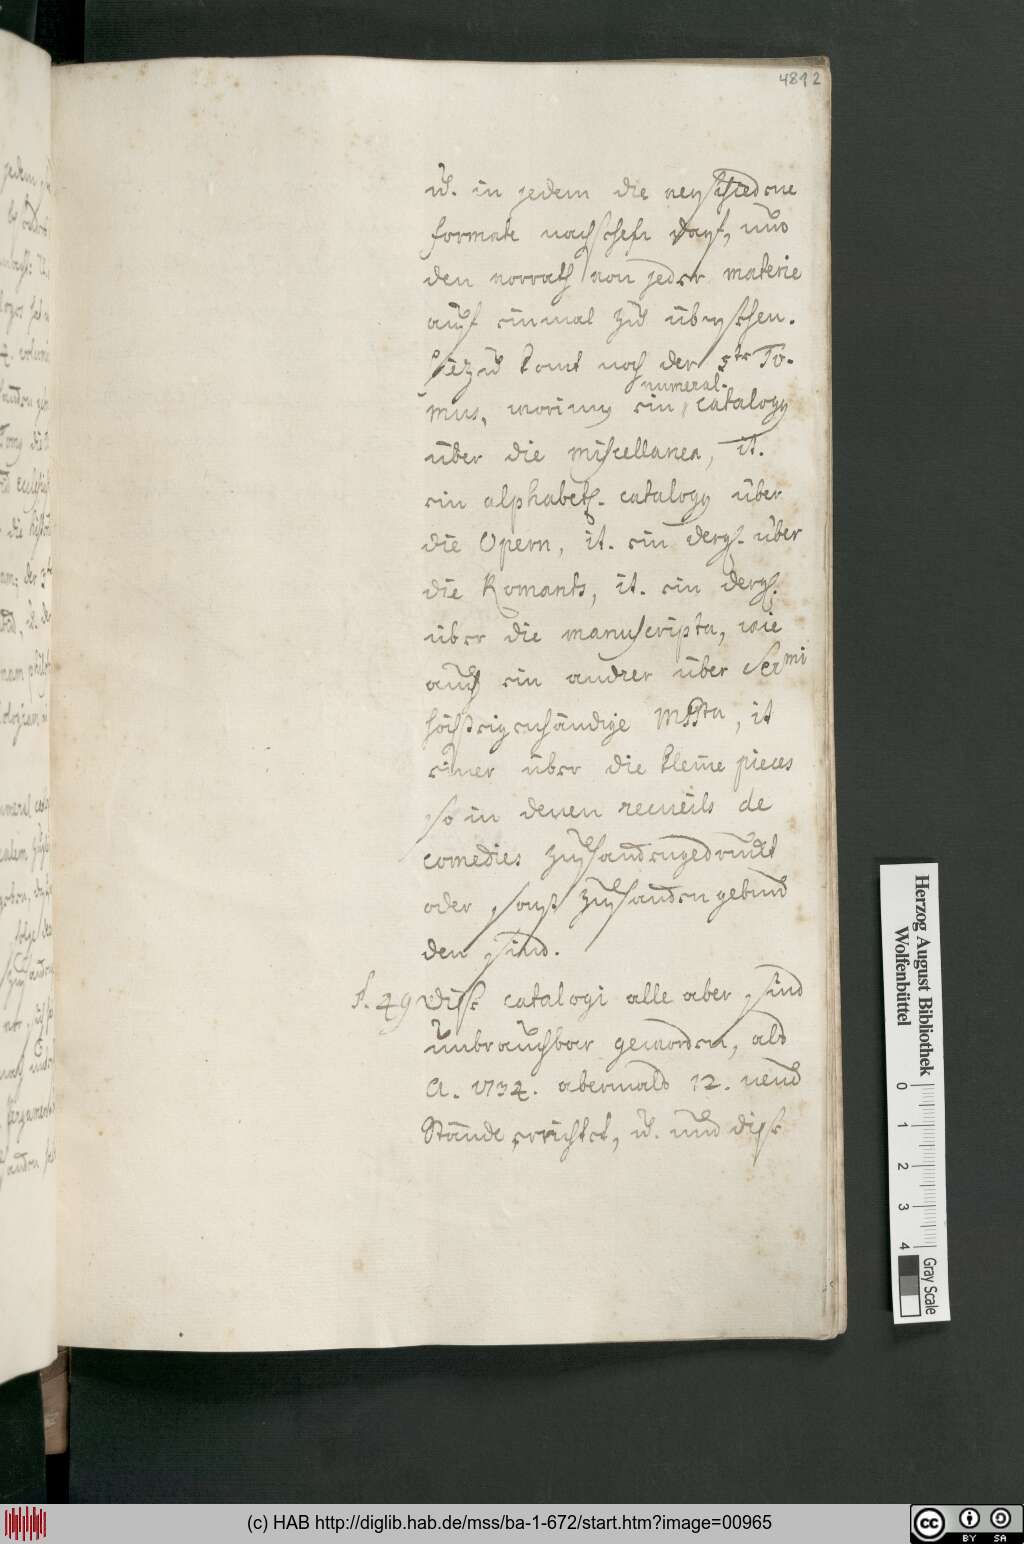 4812
ú. in jedem die verschiedene
formate nachsehen darf, und
den vorrath von jeder materie
auf einmal zu übersehen.
hiezu komt noch der 5te To-
mus, worinn ein numeral-
catalogg
über die miscellanea, it.
ein alphabet. catalogg über
die Opern, it. ein dergl. über
die Romants, it. ein dergl.
über die manuscripta, wie
auch ein andrer über Sermi
höchsteigenhändige Mssta, it
einer über die kleine pieces
so in denen recueils de
comedies zusammengedruckt
oder sonst zusammen gebun
den sind.
§. 49 Diese catalogi alle aber sind
unbrauchbar geworden, als
A. 1734. abermals 12. neue
Stände errichtet, ú. und diese
Herzog August Bibliothek
Wolfenbüttel
0 1 2 3 4
Gray Scale
(c) HAB http://diglib.hab.de/mss/ba-1-672/start.htm?image=00965
cc BY SA